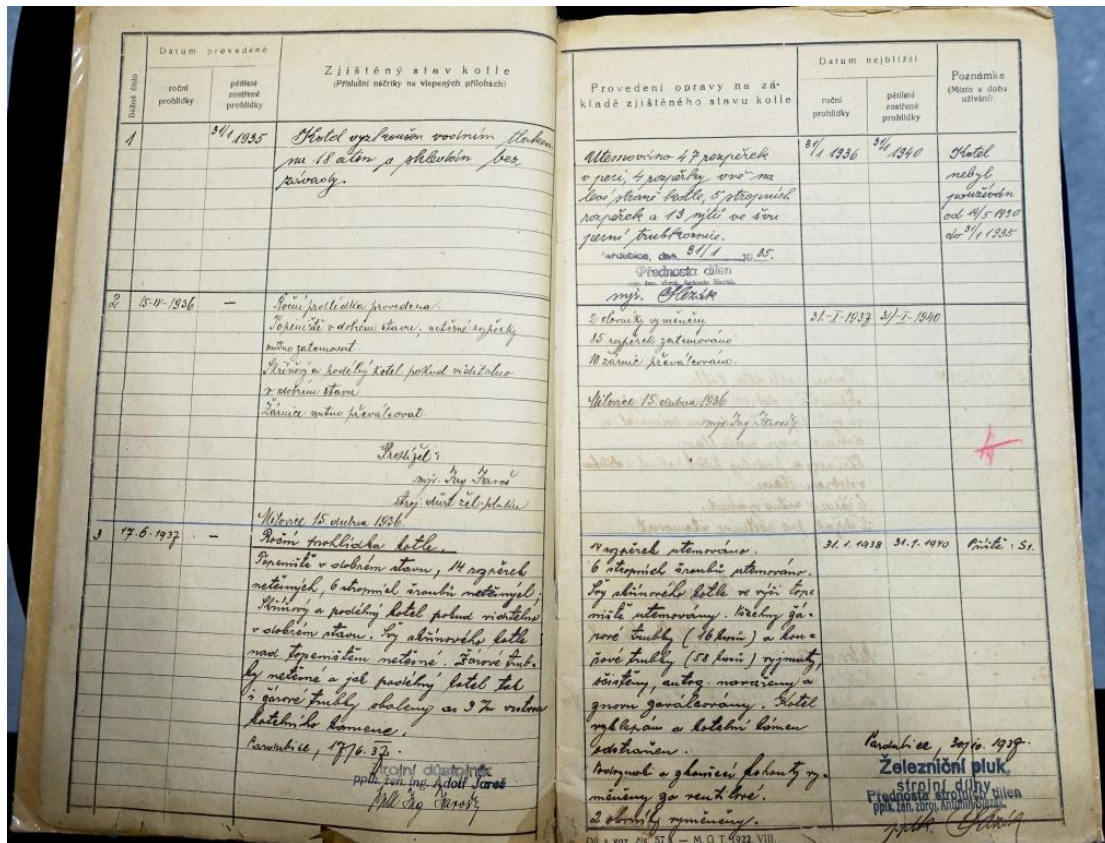 Běžné číslo
Datum provedené
roční prohlídky
pětileté zostřené prohlídky
Zjištěný stav kotle
(Příslušní náčrtky na vlepených přílohách)
1
31/1 1935
Kotel vyzkoušen vodním tlakem
na 18 atm a shledán bez
závady.
2
15-IV-1936
—
Roční prohlídka provedena.
Topeniště v dobrém stavu, netěsné rozpěrky
nutno zatemovat.
Skříňový a podélný kotel pokud viditelno
v dobrém stavu
Žárnice nutno převálcovat.
Prohlížel:
mjr. Ing Jaroš
stroj. důst. žel. pluku
Milovice 15. dubna 1936.
3
17.6.1937
—
Roční prohlídka kotle.
Topeniště v dobrém stavu, 14 rozpěrek
netěsných, 6 stropních šroubů netěsných,
Skříňový a podélný kotel pokud viditelno
v dobrém stavu. Švy skříňového kotle
nad topeništěm netěsné. Žárové trub-
ky netěsné a jak podélný kotel tak
i žárové trubky obaleny as 3 vrstvou
kotelního kamene.
Pardubice, 17/6.37.
Strojní důstojník
pplk. žen. ing. Adolf Jaroš
pplk Ing Jaroš
Provedení opravy na zá-
kladě zjištěného stavu kotle
Datum nejbližší
roční prohlídky
pětileté zostřené prohlídky
Poznámka
(Místo a doba užívání)
Utemováno 47 rozpěrek
v peci, 4 rozpěrky vně na
levé straně kotle, 5 stropních
rozpěrek a 13 nýtů ve švu
pecní trubkovnice.
Pardubice, dne 31/1 1935.
Přednosta dílen
mjr. Slezák
31/1 1936
31/1 1940
Kotel
nebyl
používán
od 14/5 1930
do 31/1 1935
2 olovníky vyměněny
85 rozpěrek zatemováno
10 žárnic převálcováno.
Milovice 15. dubna 1936
mjr Ing Jaroš
31.-I-1937
31/-I-1940
14 rozpěrek utemováno.
6 stropních šroubů utemováno.
Švy skříňového kotle ve výši tope
niště utemovány. Všechny žá-
rové trubky (16 kusů) a kou-
řové trubky (58 kusů) vyjmuty,
očištěny, autog. navařeny a
znovu zaválcovány. Kotel
vyklepán a kotelní kámen
odstraněn.
Vodoznak a zkoušecí kohouty vy-
měněny za ventilové.
2 olovníky vyměněny.
31.1.1938
31.1.1940
Příště: St.
Pardubice, 30/10. 1937.
Železniční pluk,
strojní dílny
Přednosta strojních dílen
pplk. žen. zbroj. Antonín Slezák.
pplk. Slezák
Díl a voz. čís. 57 — M. G. T. 1922. VIII.